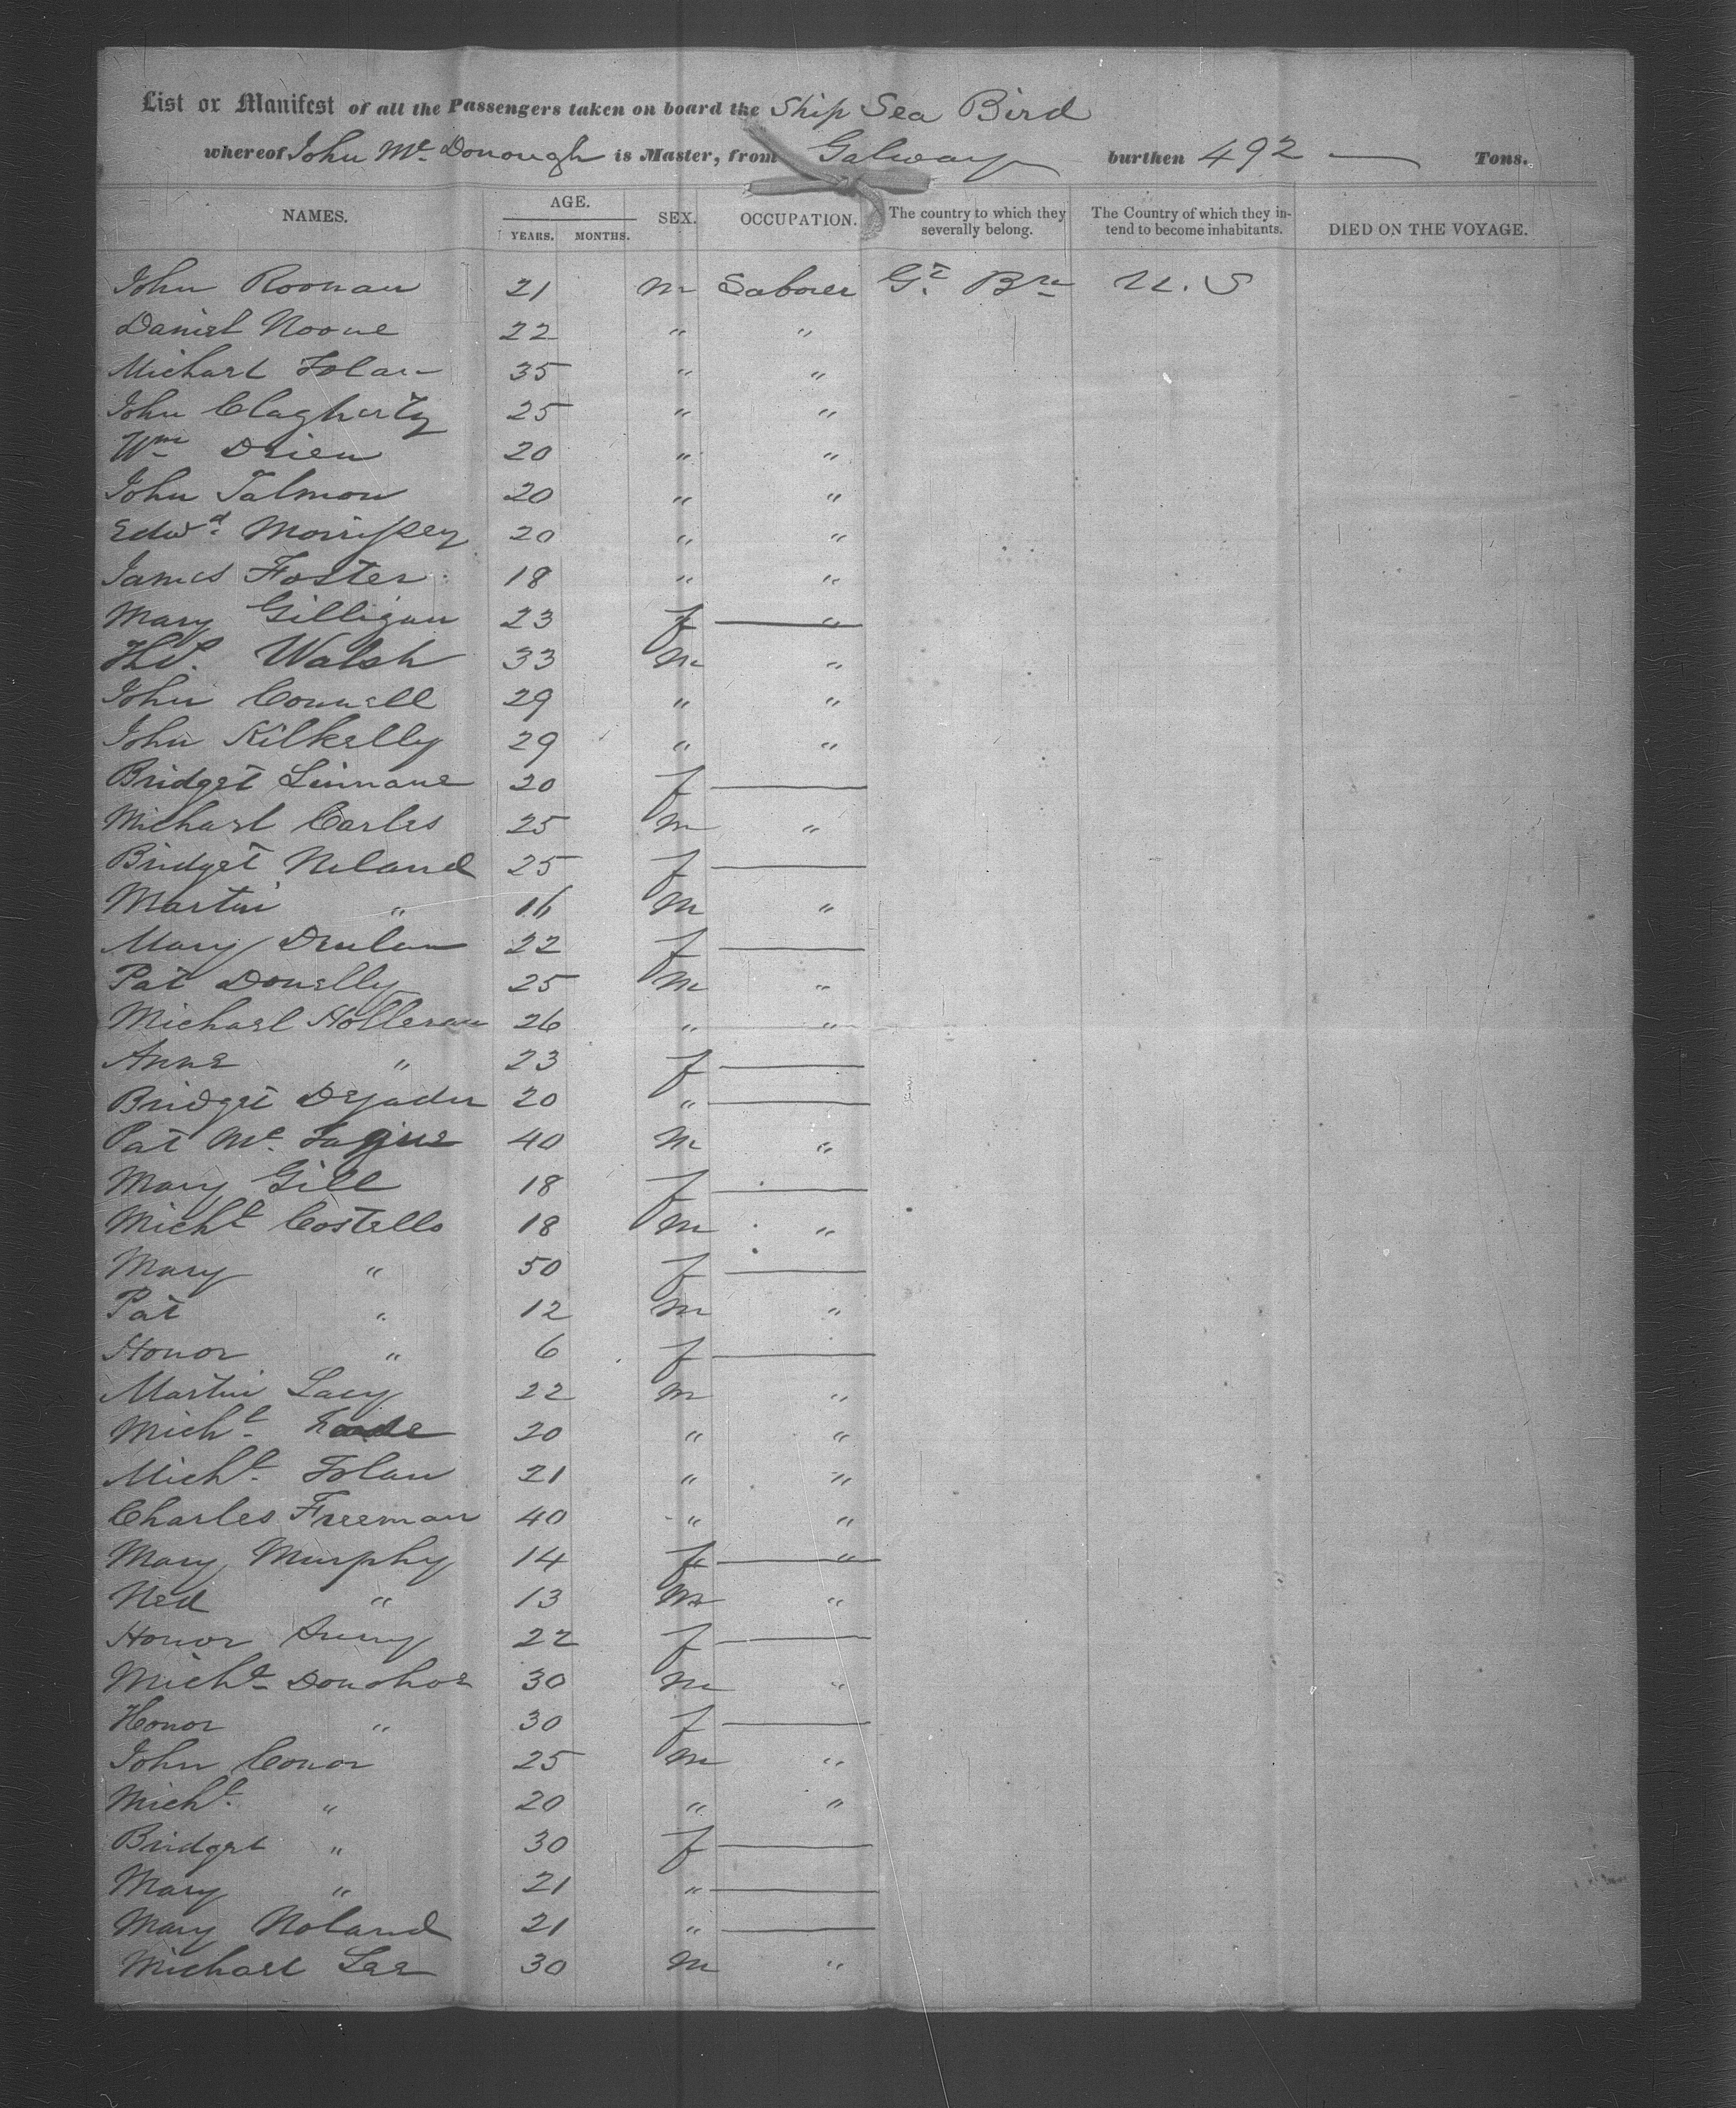 List or Manifest of all the Passengers taken on board the Ship Sea Bird
whereof John Mc Donough is Master, from Galway burthen 492 — Tons.
NAMES. AGE. YEARS. MONTHS. SEX. OCCUPATION. The country to which they severally belong. The Country of which they intend to become inhabitants. DIED ON THE VOYAGE.
John Roonan 21 m Laborer Gt. Brn U.S
Daniel Noone 22 " "
Michael Folan 35 " "
John Clagherty 25 " "
Wm 20 " "
John Talmon 20 " "
Edwd. Morrissey 20 " "
James Foster 18 " "
Mary Gilligan 23 f — "
Thos. Walsh 33 m "
John Connell 29 " "
John Kilkelly 29 " "
Bridget Linnane 20 f —
Michael Carles 25 m "
Bridget Neland 25 f —
Martin " 16 m "
Mary 22 f —
Pat Donelly 25 m "
Michael Holleran 26 " "
Anne " 23 f —
Bridget 20 " —
Pat Mc. 40 m "
Mary Gill 18 f —
Michl Costello 18 m "
Mary " 50 f —
Pat " 12 m "
Honor " 6 f —
Martin Lacy 22 m "
Michl. 20 " "
Michl. Folan 21 " "
Charles Freeman 40 " "
Mary Murphy 14 f — "
Ned " 13 m "
Honor 22 f —
Michl Donohoe 30 m "
Honor " 30 f —
John Conor 25 m "
Michl. " 20 " "
Bridget " 30 f —
Mary " 21 " —
Mary Noland 21 " —
Michael Lee 30 m "